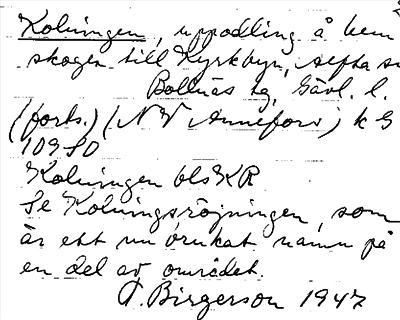 Kolningen, uppodling å hem
skogen till Kyrkbyn, Alfta s
Bollnäs tg, Gävl. l.
(forts.) (NV Annefors) k G
109 SO
Kolningen bls KR
Se Kolningsröjningen, som
är ett nu brukat namn på
en del av området.
A. Birgerson 1947